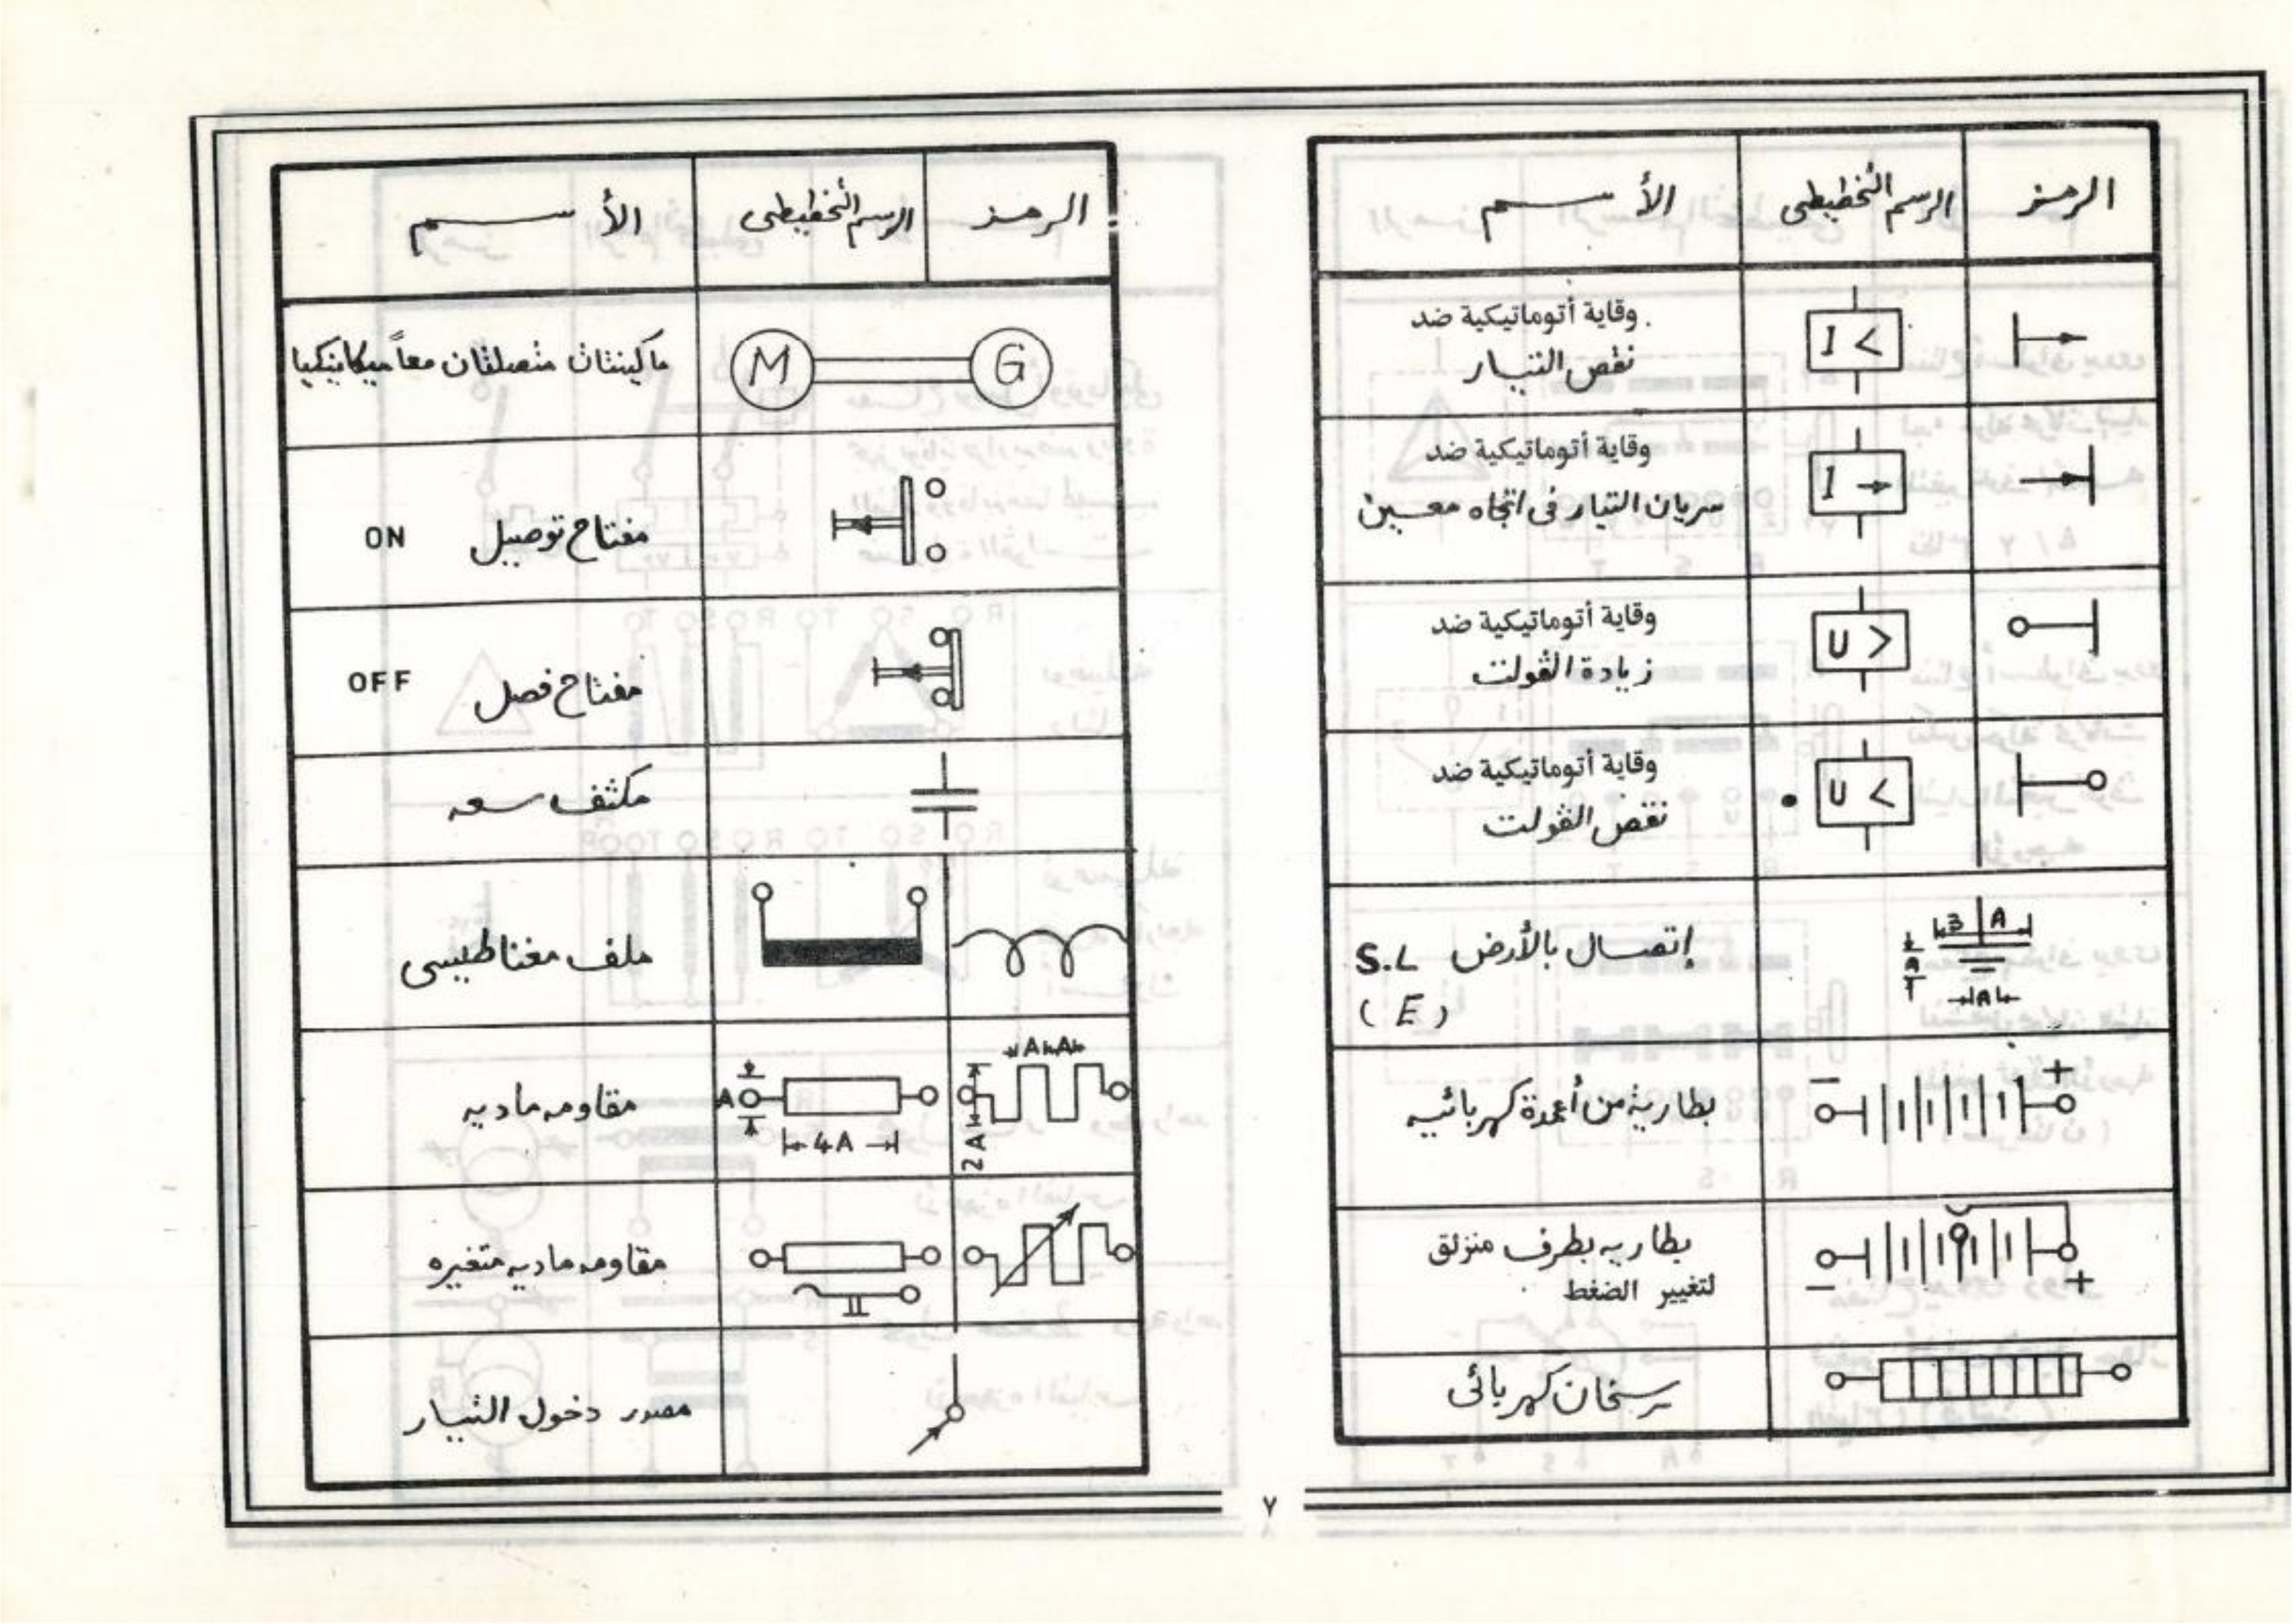 الرمز الرسم التخطيطى الأسم
وقاية أتوماتيكية ضد
نقص التيار
I <
وقاية أتوماتيكية ضد
سريان التيار فى اتجاه معين
I →
وقاية أتوماتيكية ضد
زيادة الڤولت
U >
وقاية أتوماتيكية ضد
نقص الڤولت
U <
إتصال بالأرض S.L
(E)
3 A
A
A
بطارية من أعمدة كهربائيه
− +
بطاريه بطرف منزلق
لتغيير الضغط
− +
سخان كهربائى
الرمز الرسم التخطيطى الأسم
ماكينتان متصلتان معاً ميكانيكيا
M G
مفتاح توصيل ON
مفتاح فصل OFF
مكثف سعه
ملف مغناطيسى
مقاومه ماديه
A
4A
A A
2A
مقاومه ماديه متغيره
مصدر دخول التيار
٧